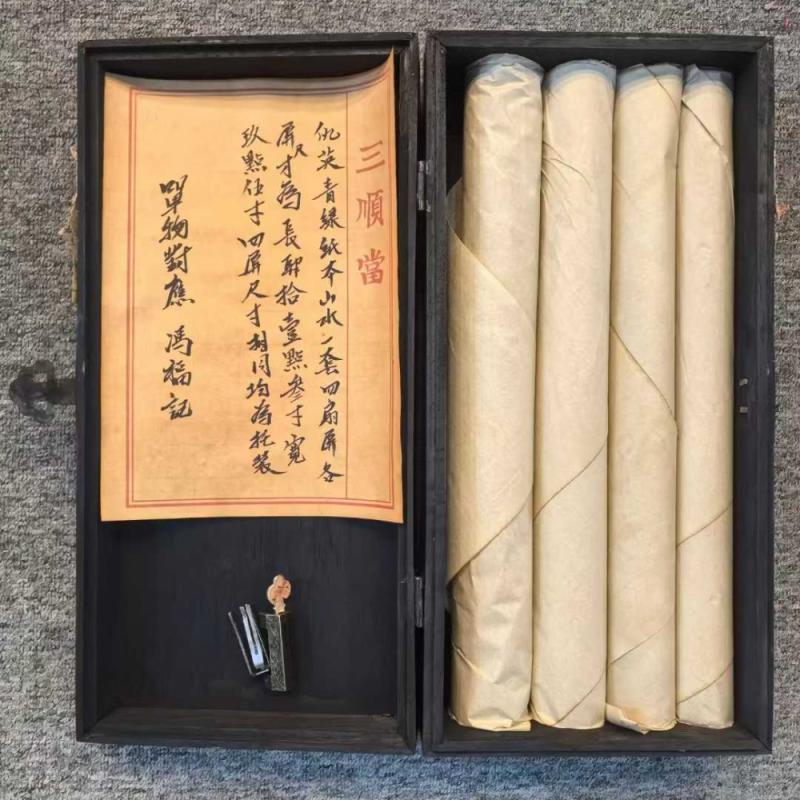 三順當
仇英青綠紙本山水一套四扇屏各
屏尺寸為長肆拾壹點參寸寬
玖點伍寸四屏尺寸相同均為托裝
單物對應 馮福記